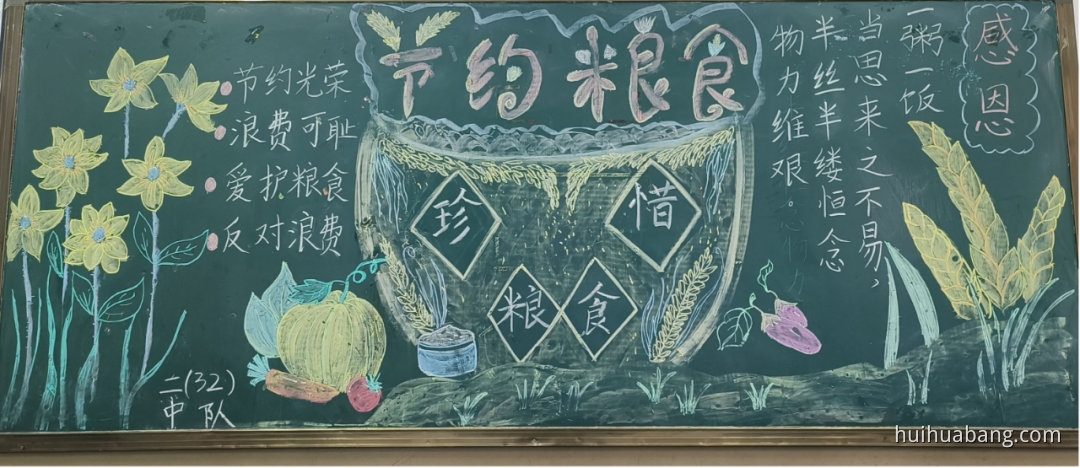 节约粮食
节约光荣
浪费可耻
爱护粮食
反对浪费
珍惜
粮食
感恩
一粥一饭
当思来之不易，
半丝半缕恒念
物力维艰。
二(32)
中队
huihuabang.com